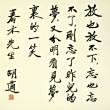 放也放不下，忘也忘
不了，剛忘了昨兒的
夢，又分明看見夢
裏的一笑
先生 胡適